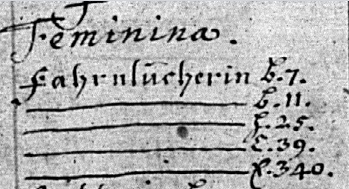 Feminina.
Fahrnlücherin b. 7.
b. 11.
f. 25.
f. 39.
f. 340.